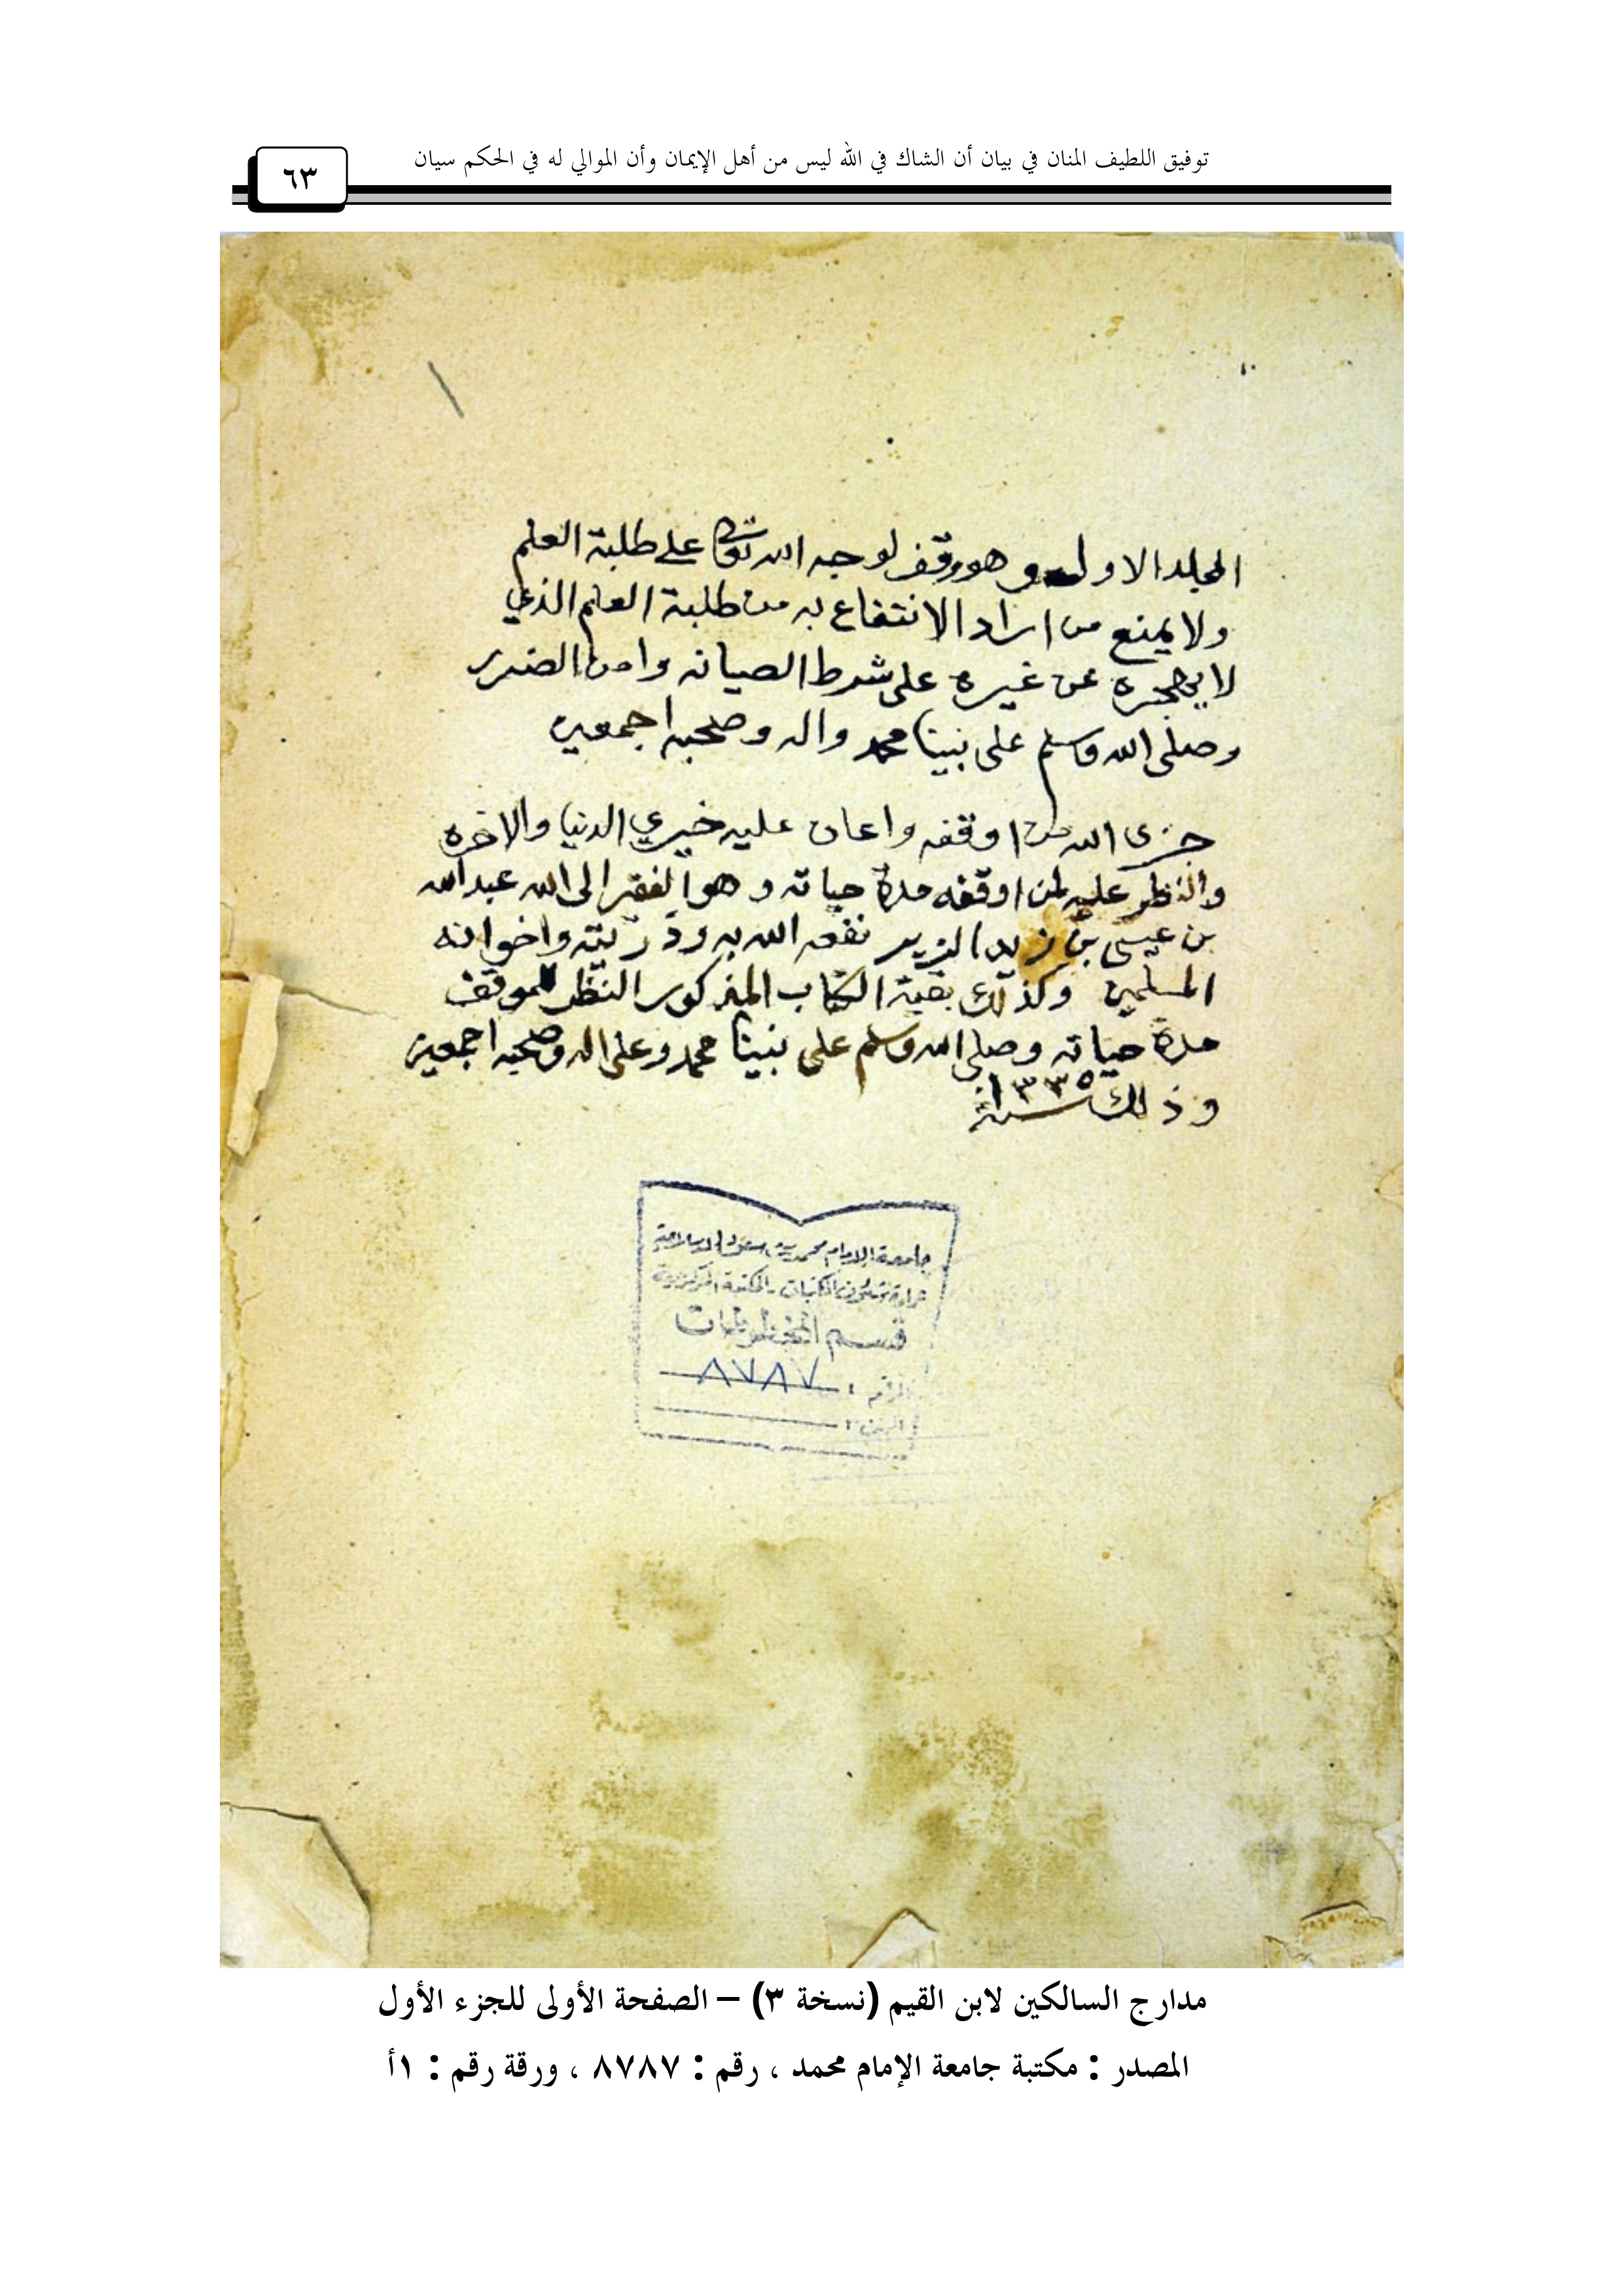 توفيق اللطيف المنان في بيان أن الشاك في الله ليس من أهل الإيمان وأن الموالي له في الحكم سيان
٦٣
المجلد الاول وهو وقف لوجه الله تعالى على طلبة العلم
ولا يمنع من اراد الانتفاع به من طلبة العلم الذي
لا يحجره عن غيره على شرط الصيانه وامن الضرر
وصلى الله وسلم على نبينا محمد واله وصحبه اجمعين
جزى الله من اوقفه واعان عليه خيري الدنيا والاخره
والنظر عليه لمن اوقفه مدة حياته وهو الفقير الى الله عبد الله
بن عيسى بن زيد الزير نفعه الله به وذريته واخوانه
المسلمين وكذلك بقية الكتاب المذكور النظر للموقف
مدة حياته وصلى الله وسلم على نبينا محمد وعلى اله وصحبه اجمعين
وذلك سنة ١٣٣٥
جامعة الإمام محمد بن سعود الإسلامية
عمادة شئون المكتبات - المكتبة المركزية
قسم المخطوطات
الرقم : ٨٧٨٧
مدارج السالكين لابن القيم (نسخة ٣) – الصفحة الأولى للجزء الأول
المصدر : مكتبة جامعة الإمام محمد ، رقم : ٨٧٨٧ ، ورقة رقم : ١أ